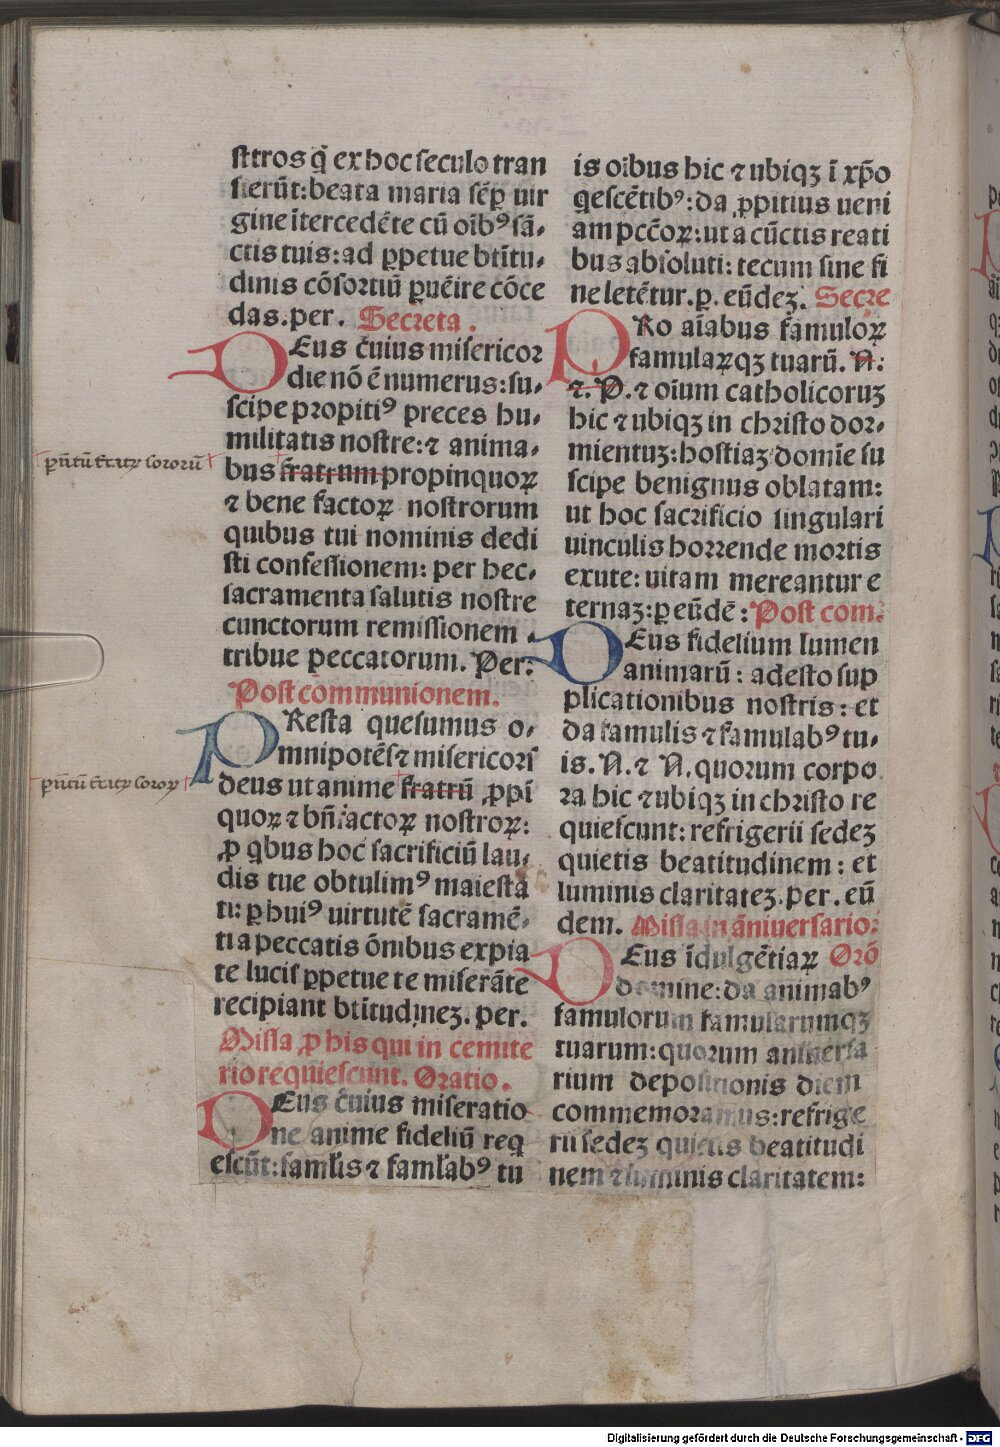 sttros q̃ ex hoc seculo tran
sierũt: beata maria sẽp uir
gine ĩtercedẽte cũ oĩbꝰ sã-
ctis tuis: ad ꝑpetue btĩtu-
dinis cõsortiũ ꝑuẽire cõce
das. per. Secreta.
DEus cũius misericor
die nõ ẽ numerus: su-
scipe propitiꝰ preces hu-
militatis nostre: ⁊ anima-
bus fratrum propinquoꝝ
⁊ bene factoꝝ nostrorum
quibus tui nominis dedi
sti confessionem: per hec-
sacramenta salutis nostre
cunctorum remissionem
tribue peccatorum. Per:
Post communionem.
PResta quesumus o-
mnipotẽs ⁊ misericors
deus ut anime fratrũ ꝓpĩ
quoꝝ ⁊ bñfactoꝝ nostroꝝ:
ꝓ qbus hoc sacrificiũ lau-
dis tue obtulimꝰ maiesta
ti: ꝑ huiꝰ uirtutẽ sacramẽ-
ti a peccatis õnibus expia
te lucis ꝑpetue te miserãte
recipiant btĩtudinez. per.
Missa ꝓ his qui in cemite
rio requiescunt. Oratio.
DEus cũius miseratio
ne anime fideliũ req
escũt: famĺis ⁊ famĺabꝰ tu
is oĩbus hic ⁊ ubiqꝫ ĩ xp̃o
qescẽtibꝰ: da ꝓpitius ueni
am pcc̃oꝝ: ut a cũctis reati
bus absoluti: tecum sine fi
ne letẽtur. ꝑ. eũdeꝫ. Secre
PRo aĩabus famuloꝝ
famulaꝝqꝫ tuarũ. N:
⁊. P. ⁊ oĩum catholicoruꝫ
hic ⁊ ubiqꝫ in christo dor-
mientuꝫ: hostiaꝫ domĩe su
scipe benignus oblatam:
ut hoc sacrificio singulari
uinculis horrende mortis
exute: uitam mereantur e
ternaꝫ: ꝑ eũdẽ: Post com:
DEus fidelium lumen
animarũ: adesto sup
plicationibus nostris: et
da famulis ⁊ famulabꝰ tu-
is. N. ⁊ N. quorum corpo
ra hic ⁊ ubiqꝫ in christo re
quiescunt: refrigerii sedeꝫ
quietis beatitudinem: et
luminis claritateꝫ. per. eũ
dem. Missa in ãniuersario:
DEus ĩdulgẽtiaꝝ Orõ
domine: da animabꝰ
famulorum famularumqꝫ
tuarum: quorum aniuersa
rium depositionis diem
commemoramus: refrige
rii sedeꝫ quietis beatitudi
nem ⁊ luminis claritatem:
Digitalisierung gefördert durch die Deutsche Forschungsgemeinschaft - DFG